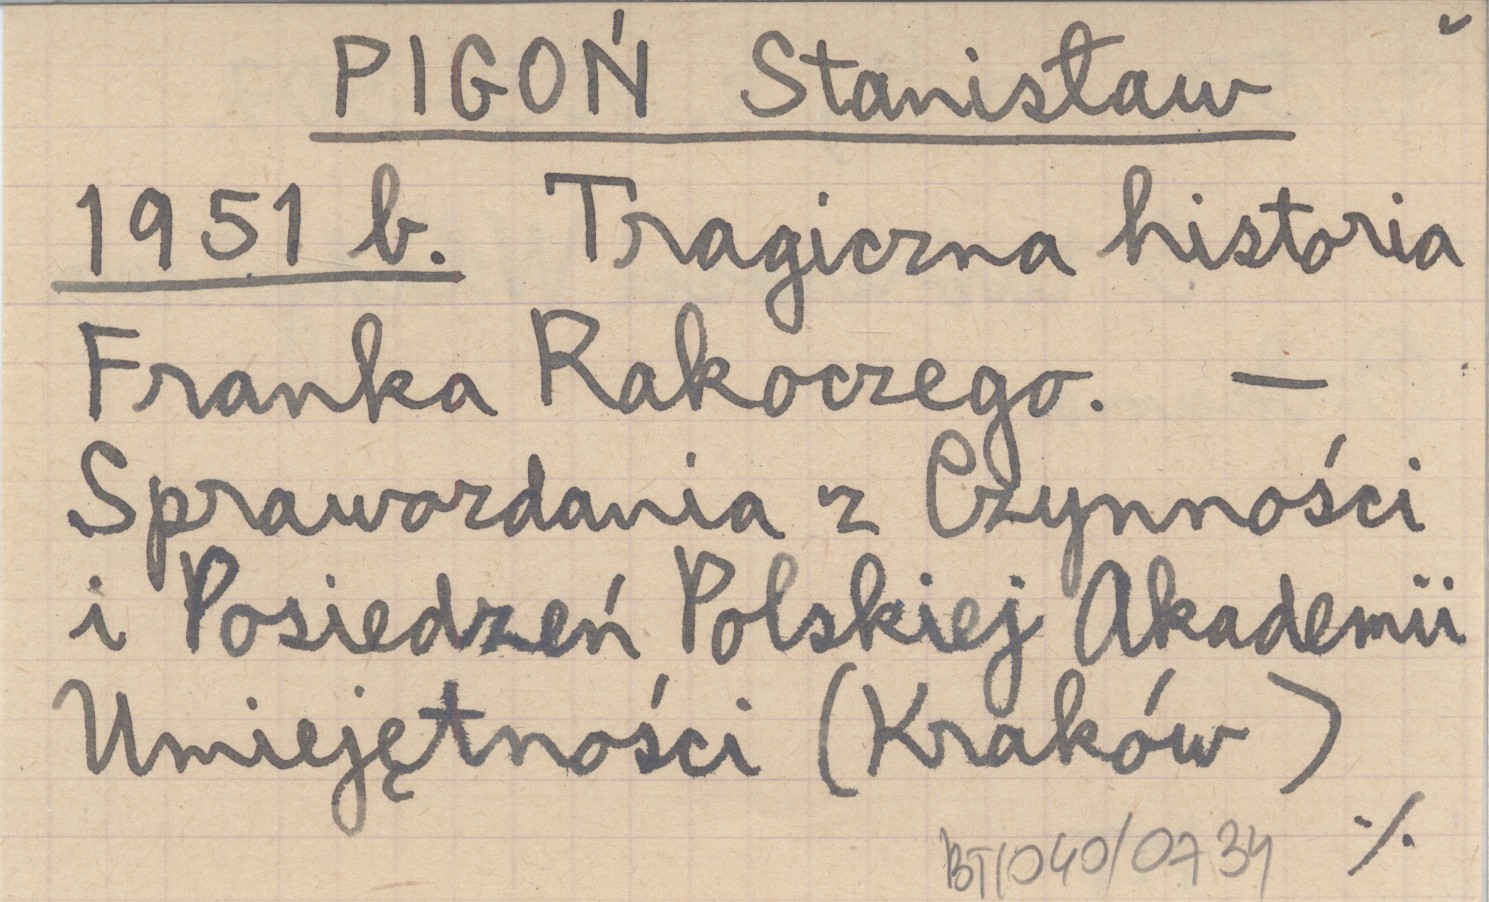 PIGOŃ Stanisław
1951 b. Tragiczna historia
Franka Rakoczego. —
Sprawozdania z Czynności
i Posiedzeń Polskiej Akademii
Umiejętności (Kraków)
./.
BT/040/0734